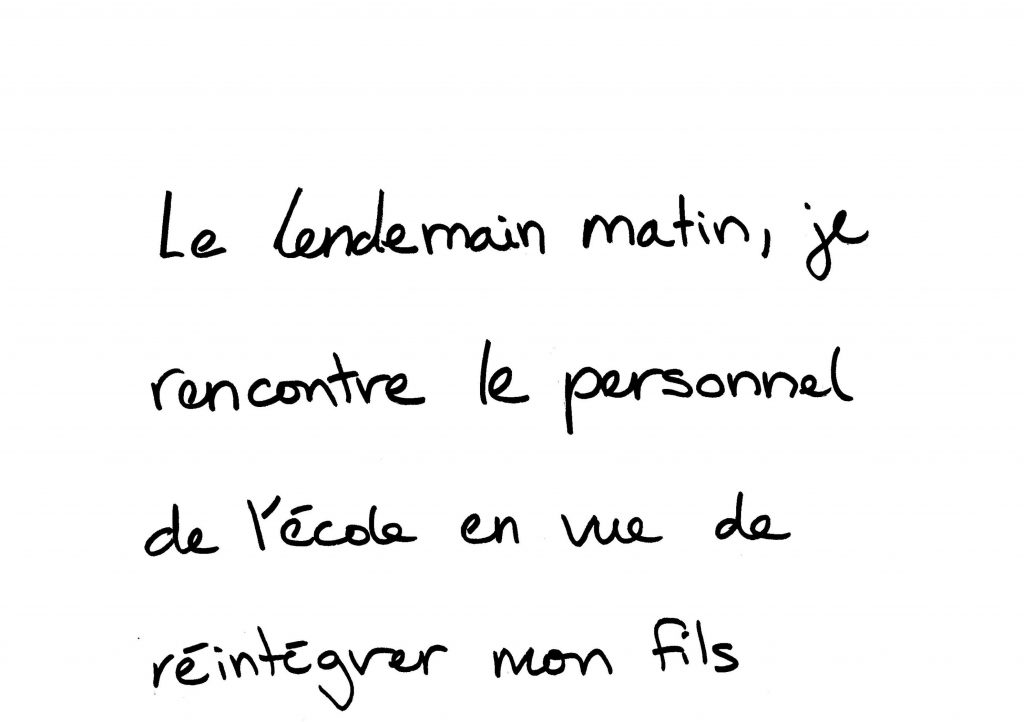 Le lendemain matin, je
rencontre le personnel
de l'école en vue de
réintégrer mon fils